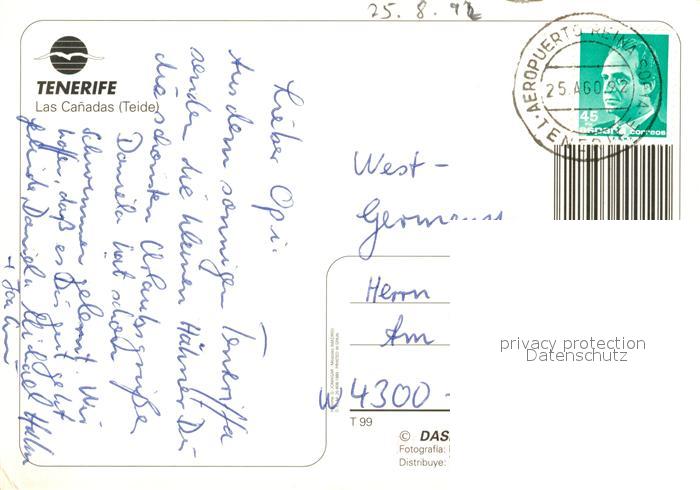 25. 8. 92
TENERIFE
Las Cañadas (Teide)
AEROPUERTO REINA SOFIA
25 AGO 92
TENERIFE
45
españa correos
Lieber Opi.
Aus dem sonnigen Teneriffa
senden die kleinen Hühner Dir
die schönsten Urlaubsgrüße
Daniela hat schon
Schwimmen gelernt. Wir
hoffen, daß es Dir gut geht
Daniela Michael
West-
Germany
Herrn
Am
W 4300 -
T 99
© DAS
Fotografía:
Distribuye:
privacy protection
Datenschutz